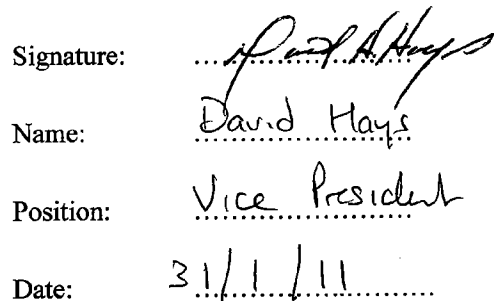 Signature: David A. Hays
Name: David Hays
Position: Vice President
Date: 31/1/11